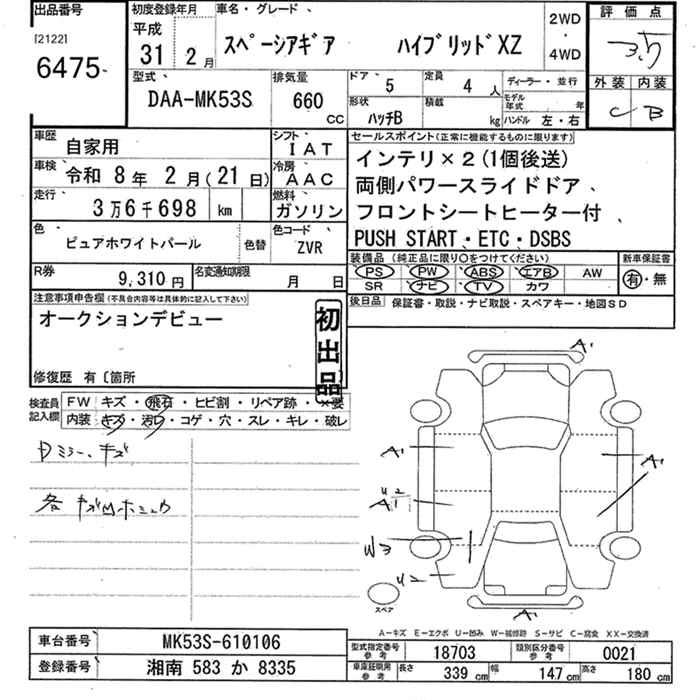 出品番号 初度登録年月 車名・グレード、 2WD・4WD 評価点
[2122] 平成
6475 31年 2月 スペーシアギア ハイブリッドXZ 3.5
型式 排気量 ドア 定員 ディーラー・並行 外装 内装
DAA-MK53S 660 CC 5 4人 モデル年式 年 C B
形状 積載 ハンドル 左・右
ハッチB kg
車歴 自家用 シフト IAT セールスポイント(正常に機能するものに限ります)
車検 令和 8年 2月(21日) 冷房 AAC インテリ×2(1個後送)
走行 3万6千698 km 燃料 ガソリン 両側パワースライドドア、
フロントシートヒーター付、
色 ピュアホワイトパール 色替 色コード ZVR PUSH START・ETC・DSBS
R券 9,310円 名変通知期限 月 日 装備品(純正品に限り○をつけてください) 新車保証書
PS PW ABS エアB AW 有・無
SR ナビ TV カワ
注意事項申告欄(不具合内容等は具体的に記入して下さい) 後日品 保証書・取説・ナビ取説・スペアキー・地図SD
オークションデビュー
初出品
修復歴 有〔箇所
検査員記入欄 FW キズ・飛石・ヒビ割・リペア跡・×要
内装 キズ・汚レ・コゲ・穴・スレ・キレ・破レ
ミラーキズ
各キズ凹
A1
A1 A1
U2
A1
W3
U2
スペア
A1
A-キズ E-エクボ U-凹み W-補修跡 S-サビ C-腐食 XX-交換済
車台番号 MK53S-610106
型式指定番号 参考 18703 類別区分番号 参考 0021
登録番号 湘南 583 か 8335
車庫証明用 参考 長さ 339 cm 幅 147 cm 高さ 180 cm